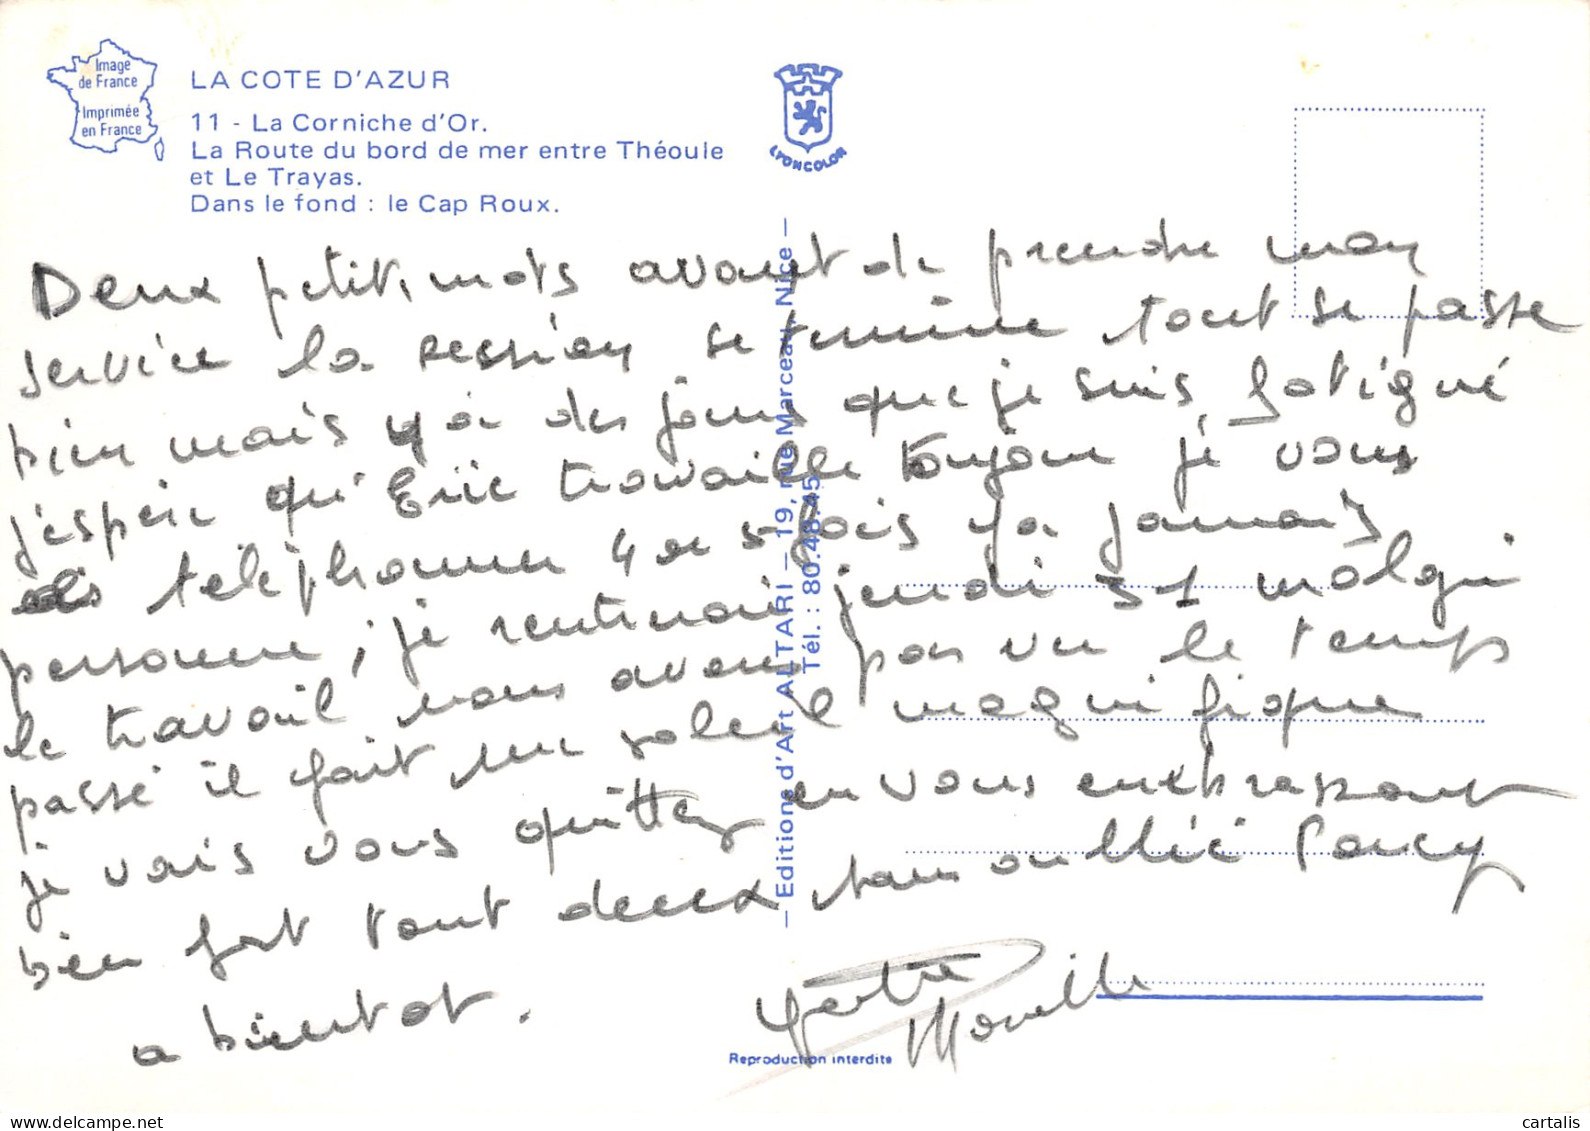 Image
de France
Imprimée
en France
LA COTE D'AZUR
11 - La Corniche d'Or.
La Route du bord de mer entre Théoule
et Le Trayas.
Dans le fond : le Cap Roux.
LYONCOLOR
Deux petits mots avant de prendre mon
service la session se termine tout se passe
bien mais y a des jours que je suis fatigué
j'espère qu'Eric travaille toujour je vous
ais téléphonner 4 ou 5 fois ya jamais
personne, je rentrerai jeudi 31 malgré
le travail nous avons pas vu le temps
passé il fait un soleil magnifique
je vais vous quittez en vous embrassant
bien fort tout deux sans oullié
a bientot.
— Editions d'Art ALTARI — 19, rue Marceau, Nice —
Tél. : 80.48.45
Reproduction interdite
cartalis